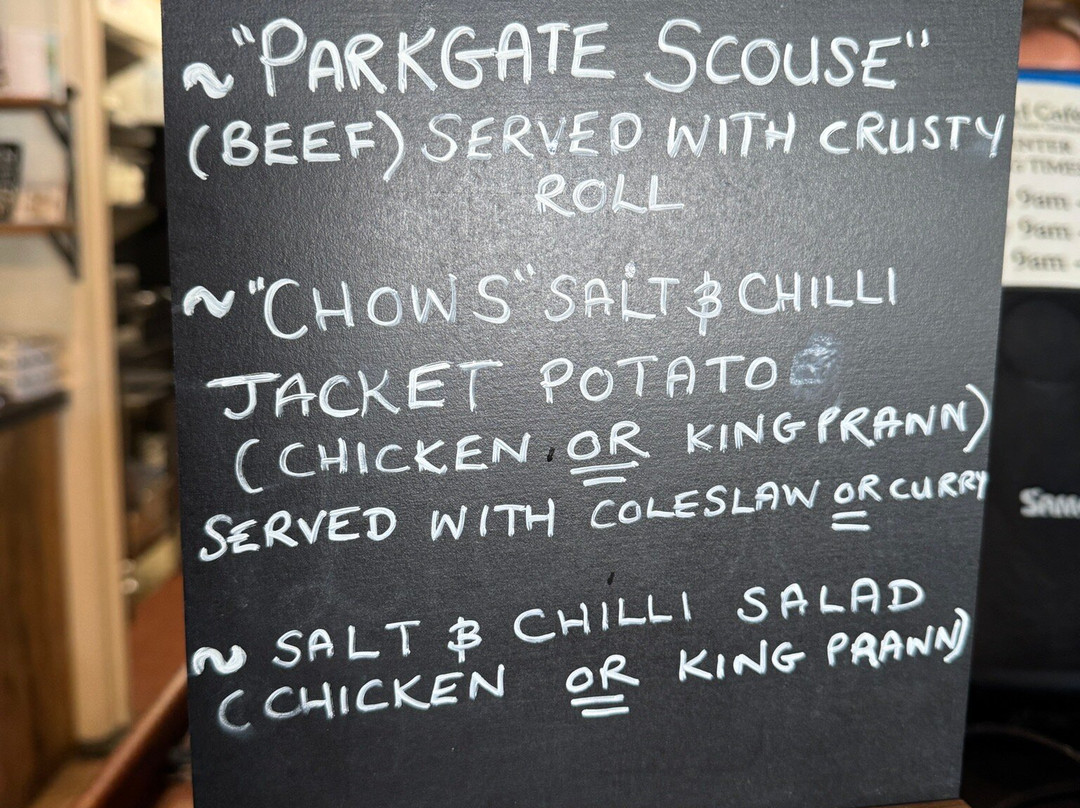 ~ "PARKGATE SCOUSE"
(BEEF) SERVED WITH CRUSTY
ROLL
~ "CHOWS" SALT & CHILLI
JACKET POTATO
(CHICKEN OR KING PRAWN)
SERVED WITH COLESLAW OR CURRY
~ SALT & CHILLI SALAD
(CHICKEN OR KING PRAWN)
9am -
9am -
9am -